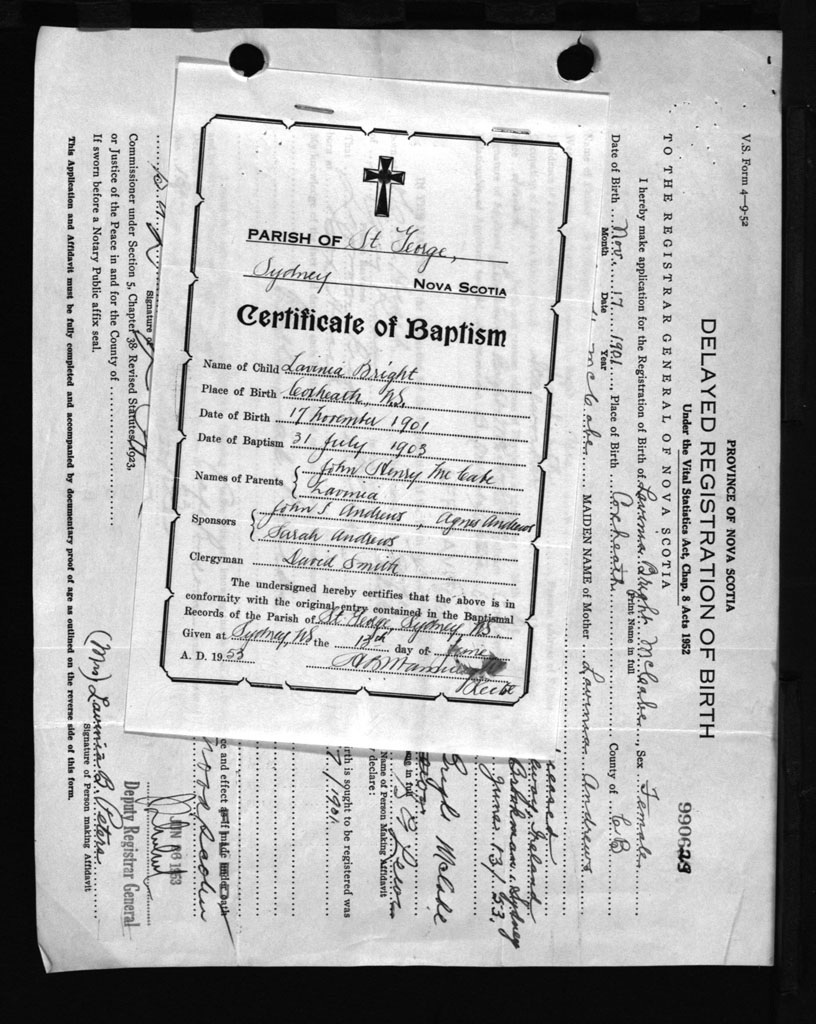 PARISH OF St. George,
Sydney NOVA SCOTIA
Certificate of Baptism
Name of Child Lavinia Bright
Place of Birth Coxheath, NS,
Date of Birth 17 November 1901
Date of Baptism 31 July 1903
Names of Parents { John Henry McCabe
Lavinia
Sponsors { John S. Andrews, Agnes Andrews
Sarah Andrews
Clergyman David Smith
The undersigned hereby certifies that the above is in
conformity with the original entry contained in the Baptismal
Records of the Parish of St. George, Sydney NS.
Given at Sydney, NS the 13th day of June
A. D. 1953
Rector
V.S. Form 4—9-52
PROVINCE OF NOVA SCOTIA
DELAYED REGISTRATION OF BIRTH
Under the Vital Statistics Act, Chap. 8 Acts 1952
990623
TO THE REGISTRAR GENERAL OF NOVA SCOTIA
I hereby make application for the Registration of Birth of Lavinia Bright McCabe, Sex Female
Print Name in full
Date of Birth Nov. 17 1901 Place of Birth Coxheath County of C.B
Month Date Year
McCabe MAIDEN NAME of Mother Lavinia Andrews
Ireland
Sydney
June 13/53.
Bright McCabe
me in full
Name of Person Making Affidavit
declare:
irth is sought to be registered was
/1901
ce and effect as if made under oath
Nova Scotia
Signature of
Commissioner under Section 5, Chapter 38, Revised Statutes, 1923,
or Justice of the Peace in and for the County of
If sworn before a Notary Public affix seal.
JUN 1953
Deputy Registrar General
(Mrs) Lavinia B Peters
Signature of Person making Affidavit
This Application and Affidavit must be fully completed and accompanied by documentary proof of age as outlined on the reverse side of this form.